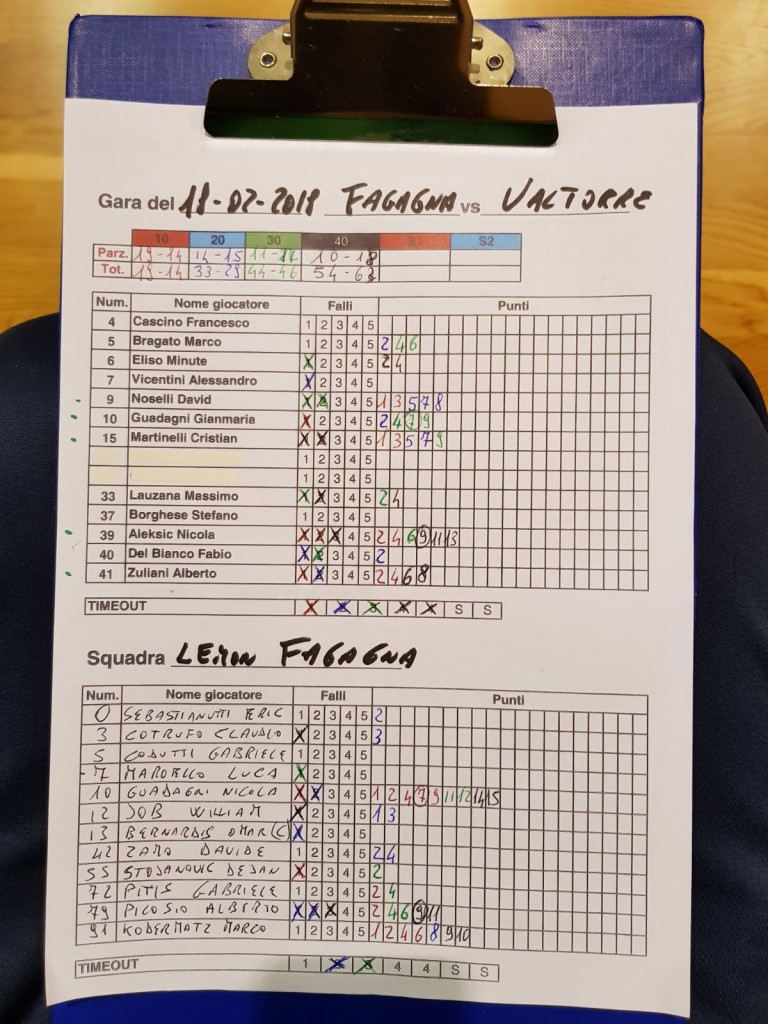 Gara del 18-02-2018 FAGAGNA vs VALTORRE
10 20 30 40 S2
Parz. 19-14 14-15 11-17 10-18
Tot. 19-14 33-29 44-46 54-63
Num. Nome giocatore Falli Punti
4 Cascino Francesco 1 2 3 4 5
5 Bragato Marco 1 2 3 4 5 2 4 6
6 Eliso Minute X 2 3 4 5 2 4
7 Vicentini Alessandro X 2 3 4 5
9 Noselli David X X 3 4 5 1 3 5 7 8
10 Guadagni Gianmaria X 2 3 4 5 2 4 7 9
15 Martinelli Cristian X X 3 4 5 1 3 5 7 9
1 2 3 4 5
1 2 3 4 5
33 Lauzana Massimo X X 3 4 5 2 4
37 Borghese Stefano 1 2 3 4 5
39 Aleksic Nicola X X X 4 5 2 4 6 9 11 13
40 Del Bianco Fabio X X 3 4 5 2
41 Zuliani Alberto X X 3 4 5 2 4 6 8
TIMEOUT X X X X X S S
Squadra LEMON FAGAGNA
Num. Nome giocatore Falli Punti
0 SEBASTIANUTTI ERIC 1 2 3 4 5 2
3 COTRUFO CLAUDIO X 2 3 4 5 3
5 CODUTTI GABRIELE 1 2 3 4 5
7 MAROELLO LUCA X 2 3 4 5
10 GUADAGNI NICOLA X X 3 4 5 1 2 4 7 9 11 12 14 15
12 JOB WILLIAM X 2 3 4 5 1 3
13 BERNARDIS OMAR (C) X 2 3 4 5
42 ZARO DAVIDE 1 2 3 4 5 2 4
55 STOJANOVIC DEJAN X 2 3 4 5 2
72 PITIS GABRIELE 1 2 3 4 5 2 4
79 PICOSIO ALBERTO X X X 4 5 2 4 6 9 11
91 KODERMATZ MARCO 1 2 3 4 5 1 2 4 6 8 9 10
TIMEOUT 1 X X 4 4 S S